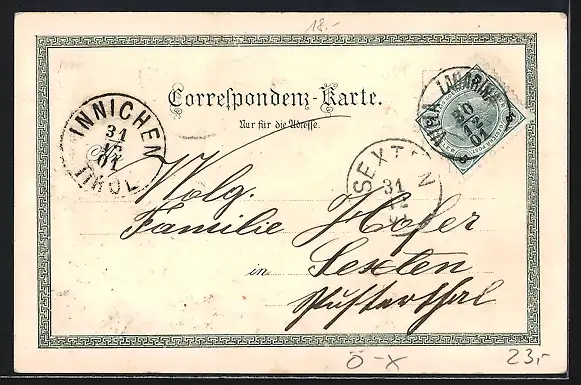 18.-
Correspondenz-Karte.
Nur für die Adresse.
INNICHEN
31
12
01
TIROL
30
12
01
SEXTEN
31
Wolg.
Familie Hofer
in Sexten
Pusterthal
Ö-X
23,-